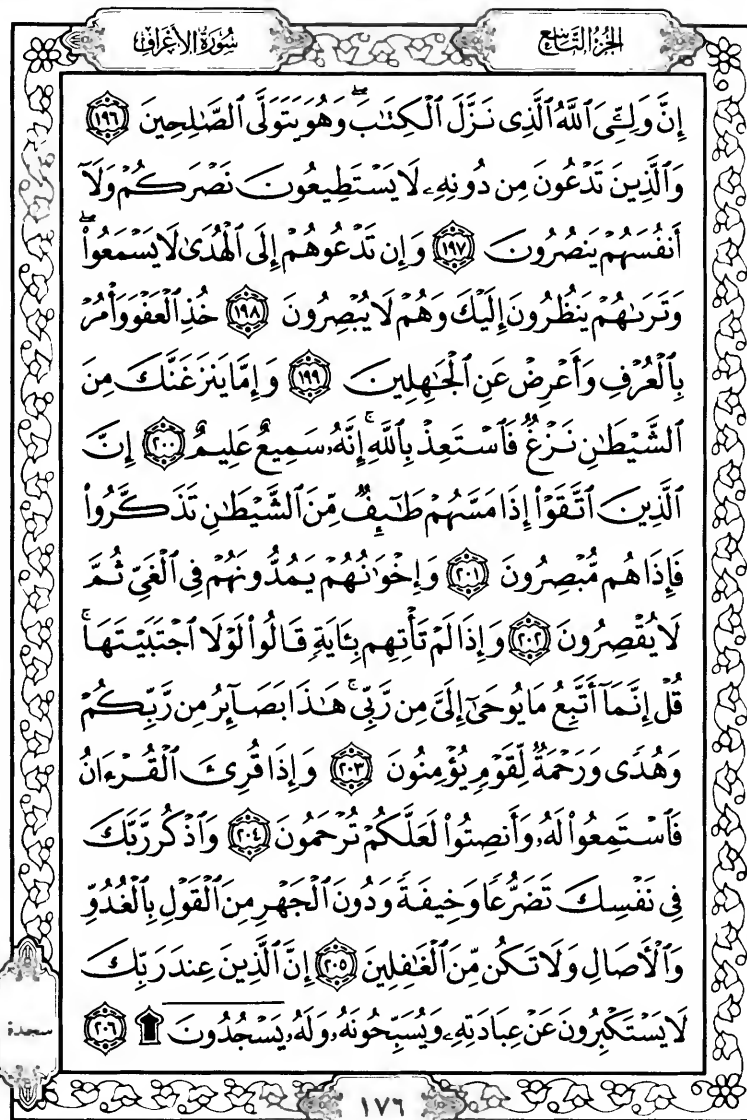 الجزء التاسع
سورة الأعراف
إِنَّ وَلِـِّۧيَ ٱللَّهُ ٱلَّذِى نَزَّلَ ٱلْكِتَٰبَۖ وَهُوَ يَتَوَلَّى ٱلصَّٰلِحِينَ ١٩٦
وَٱلَّذِينَ تَدْعُونَ مِن دُونِهِۦ لَا يَسْتَطِيعُونَ نَصْرَكُمْ وَلَآ
أَنفُسَهُمْ يَنصُرُونَ ١٩٧ وَإِن تَدْعُوهُمْ إِلَى ٱلْهُدَىٰ لَا يَسْمَعُوا۟ۖ
وَتَرَىٰهُمْ يَنظُرُونَ إِلَيْكَ وَهُمْ لَا يُبْصِرُونَ ١٩٨ خُذِ ٱلْعَفْوَ وَأْمُرْ
بِٱلْعُرْفِ وَأَعْرِضْ عَنِ ٱلْجَٰهِلِينَ ١٩٩ وَإِمَّا يَنزَغَنَّكَ مِنَ
ٱلشَّيْطَٰنِ نَزْغٌ فَٱسْتَعِذْ بِٱللَّهِۚ إِنَّهُۥ سَمِيعٌ عَلِيمٌ ٢٠٠ إِنَّ
ٱلَّذِينَ ٱتَّقَوْا۟ إِذَا مَسَّهُمْ طَٰٓئِفٌ مِّنَ ٱلشَّيْطَٰنِ تَذَكَّرُوا۟
فَإِذَا هُم مُّبْصِرُونَ ٢٠١ وَإِخْوَٰنُهُمْ يَمُدُّونَهُمْ فِى ٱلْغَىِّ ثُمَّ
لَا يُقْصِرُونَ ٢٠٢ وَإِذَا لَمْ تَأْتِهِم بِـَٔايَةٍ قَالُوا۟ لَوْلَا ٱجْتَبَيْتَهَاۚ
قُلْ إِنَّمَآ أَتَّبِعُ مَا يُوحَىٰٓ إِلَىَّ مِن رَّبِّىۚ هَٰذَا بَصَآئِرُ مِن رَّبِّكُمْ
وَهُدًى وَرَحْمَةٌ لِّقَوْمٍ يُؤْمِنُونَ ٢٠٣ وَإِذَا قُرِئَ ٱلْقُرْءَانُ
فَٱسْتَمِعُوا۟ لَهُۥ وَأَنصِتُوا۟ لَعَلَّكُمْ تُرْحَمُونَ ٢٠٤ وَٱذْكُر رَّبَّكَ
فِى نَفْسِكَ تَضَرُّعًا وَخِيفَةً وَدُونَ ٱلْجَهْرِ مِنَ ٱلْقَوْلِ بِٱلْغُدُوِّ
وَٱلْءَاصَالِ وَلَا تَكُن مِّنَ ٱلْغَٰفِلِينَ ٢٠٥ إِنَّ ٱلَّذِينَ عِندَ رَبِّكَ
لَا يَسْتَكْبِرُونَ عَنْ عِبَادَتِهِۦ وَيُسَبِّحُونَهُۥ وَلَهُۥ يَسْجُدُونَ ۩ ٢٠٦
سجدة
١٧٦